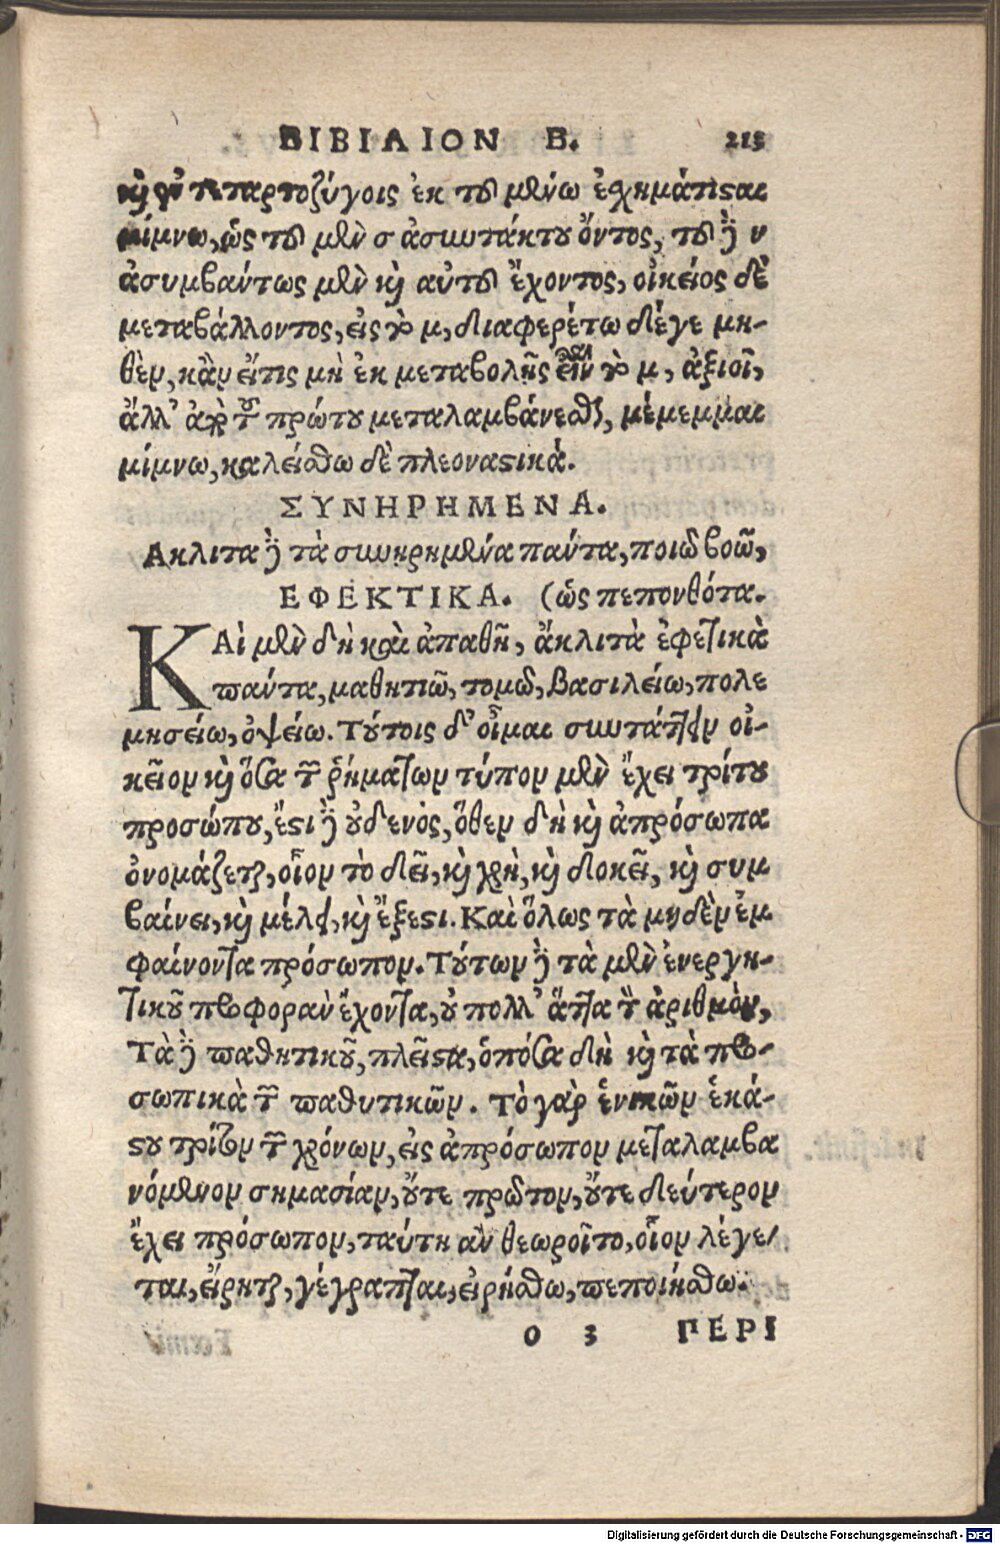 ΒΙΒΙΛΙΟΝ Β. 213
καὶ τεταρτοζύγοις ἐκ τοῦ μένω ἐχημάτισαι
μίμνω, ὡς τοῦ μὲν σ ἀσυντάκτου ὄντος, τοῦ δὲ ν
ἀσυμβαύτως μὲν καὶ αὐτοῦ ἔχοντος, οἰκείος δὲ
μεταβάλλοντος, εἰς τὸ μ, διαφερέτω δέγε μη-
θὲν, κἂν εἴτις μὴ ἐκ μεταβολῆς εἶναι τὸ μ, ἀξιοῖ,
ἀλλ’ ἀπὸ τοῦ πρώτου μεταλαμβάνεσθαι, μέμεμμαι
μίμνω, καλείσθω δὲ πλεοναστικά.
ΣΥΝΗΡΗΜΕΝΑ.
Ακλιτα δὲ τὰ συνηρημένα πάντα, ποιῶ βοῶ,
ΕΦΕΚΤΙΚΑ. (ὡς πεπονθότα.
ΚΑὶ μὲν δὴ καὶ ἀπαθῆ, ἄκλιτὰ ἐφετικὰ
πάντα, μαθητιῶ, τομῶ, βασιλείω, πολε
μησείω, ὀψείω. Τούτοις δ’ οἶμαι συντάττειν οἰ-
κεῖον καὶ ὅσα τῶν ῥήματων τύπον μὲν ἔχει τρίτου
προσώπου, ἔστι δὲ οὐδενός, ὅθεν δὴ καὶ ἀπρόσωπα
ὀνομάζεται, οἷον τὸ δεῖ, καὶ χρὴ, καὶ δοκεῖ, καὶ συμ
βαίνει, καὶ μέλει, καὶ ἔξεστι. Καὶ ὅλως τὰ μηδὲν ἐμ
φαίνοντα πρόσωπον. Τούτων δὲ τὰ μὲν ἐνεργη-
τικοῦ προφορὰν ἔχοντα, οὐ πολλ’ ἄττα τὸν ἀριθμὸν,
Τὰ δὲ παθητικοῦ, πλεῖστα, ὁπόσα δὴ καὶ τὰ προ-
σωπικὰ τῶν παθυτικῶν. Τὸ γὰρ ἑνικῶν ἑκά-
στου τρίτον τῶν χρόνων, εἰς ἀπρόσωπον μεταλαμβα
νόμενον σημασίαν, οὔτε πρῶτον, οὔτε δεύτερον
ἔχει πρόσωπον, ταύτη ἂν θεωροῖτο, οἷον λέγε/
ται, εἴρηται, γέγραπται, εἰρήσθω, πεποιήσθω.
ο 3 ΠΕΡΙ
Digitalisierung gefördert durch die Deutsche Forschungsgemeinschaft - DFG